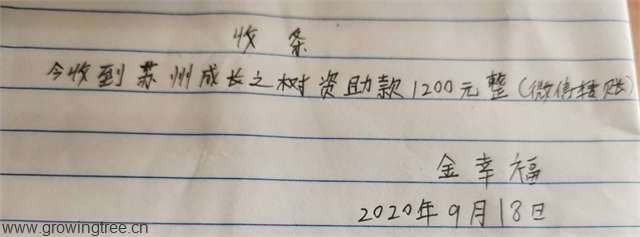 收条
今收到苏州成长之树资助款1200元整(微信转账)
金幸福
2020年9月18日
www.growingtree.cn